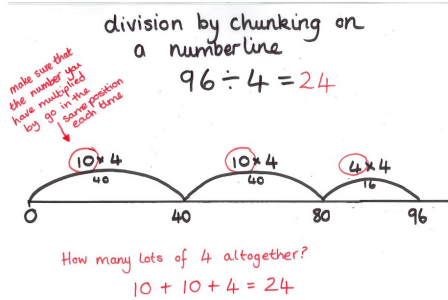 division by chunking on
a numberline
96 ÷ 4 = 24
make sure that
the number you
have multiplied
by go in the
same position
each time
10 × 4
10 × 4
4 × 4
40
40
16
0
40
80
96
How many lots of 4 altogether?
10 + 10 + 4 = 24